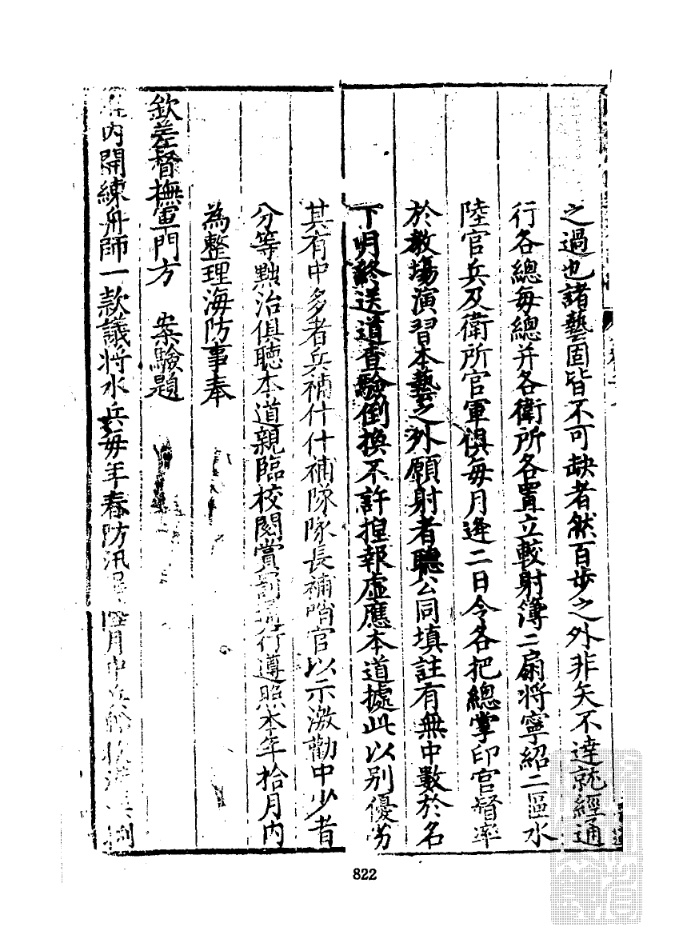 之過也諸藝固皆不可缺者然百步之外非矢不達就經通
行各總每總并各衛所各置立較射簿二扇將寧紹二區水
陸官兵及衛所官軍俱每月逢二日令各把總掌印官督率
於教場演習本藝之外願射者聽公同填註有無中數於名
下明終送道查驗倒換不許捏報虛應本道據此以別優劣
其有中多者兵補什什補隊隊長補哨官以示激勸中少者
分等黜治俱聽本道親臨校閱賞罰行遵照本年拾月內
為整理海防事奉
欽差督撫軍門方　案驗題
內開練舟師一款議將水兵每年春防汛月中兵
822